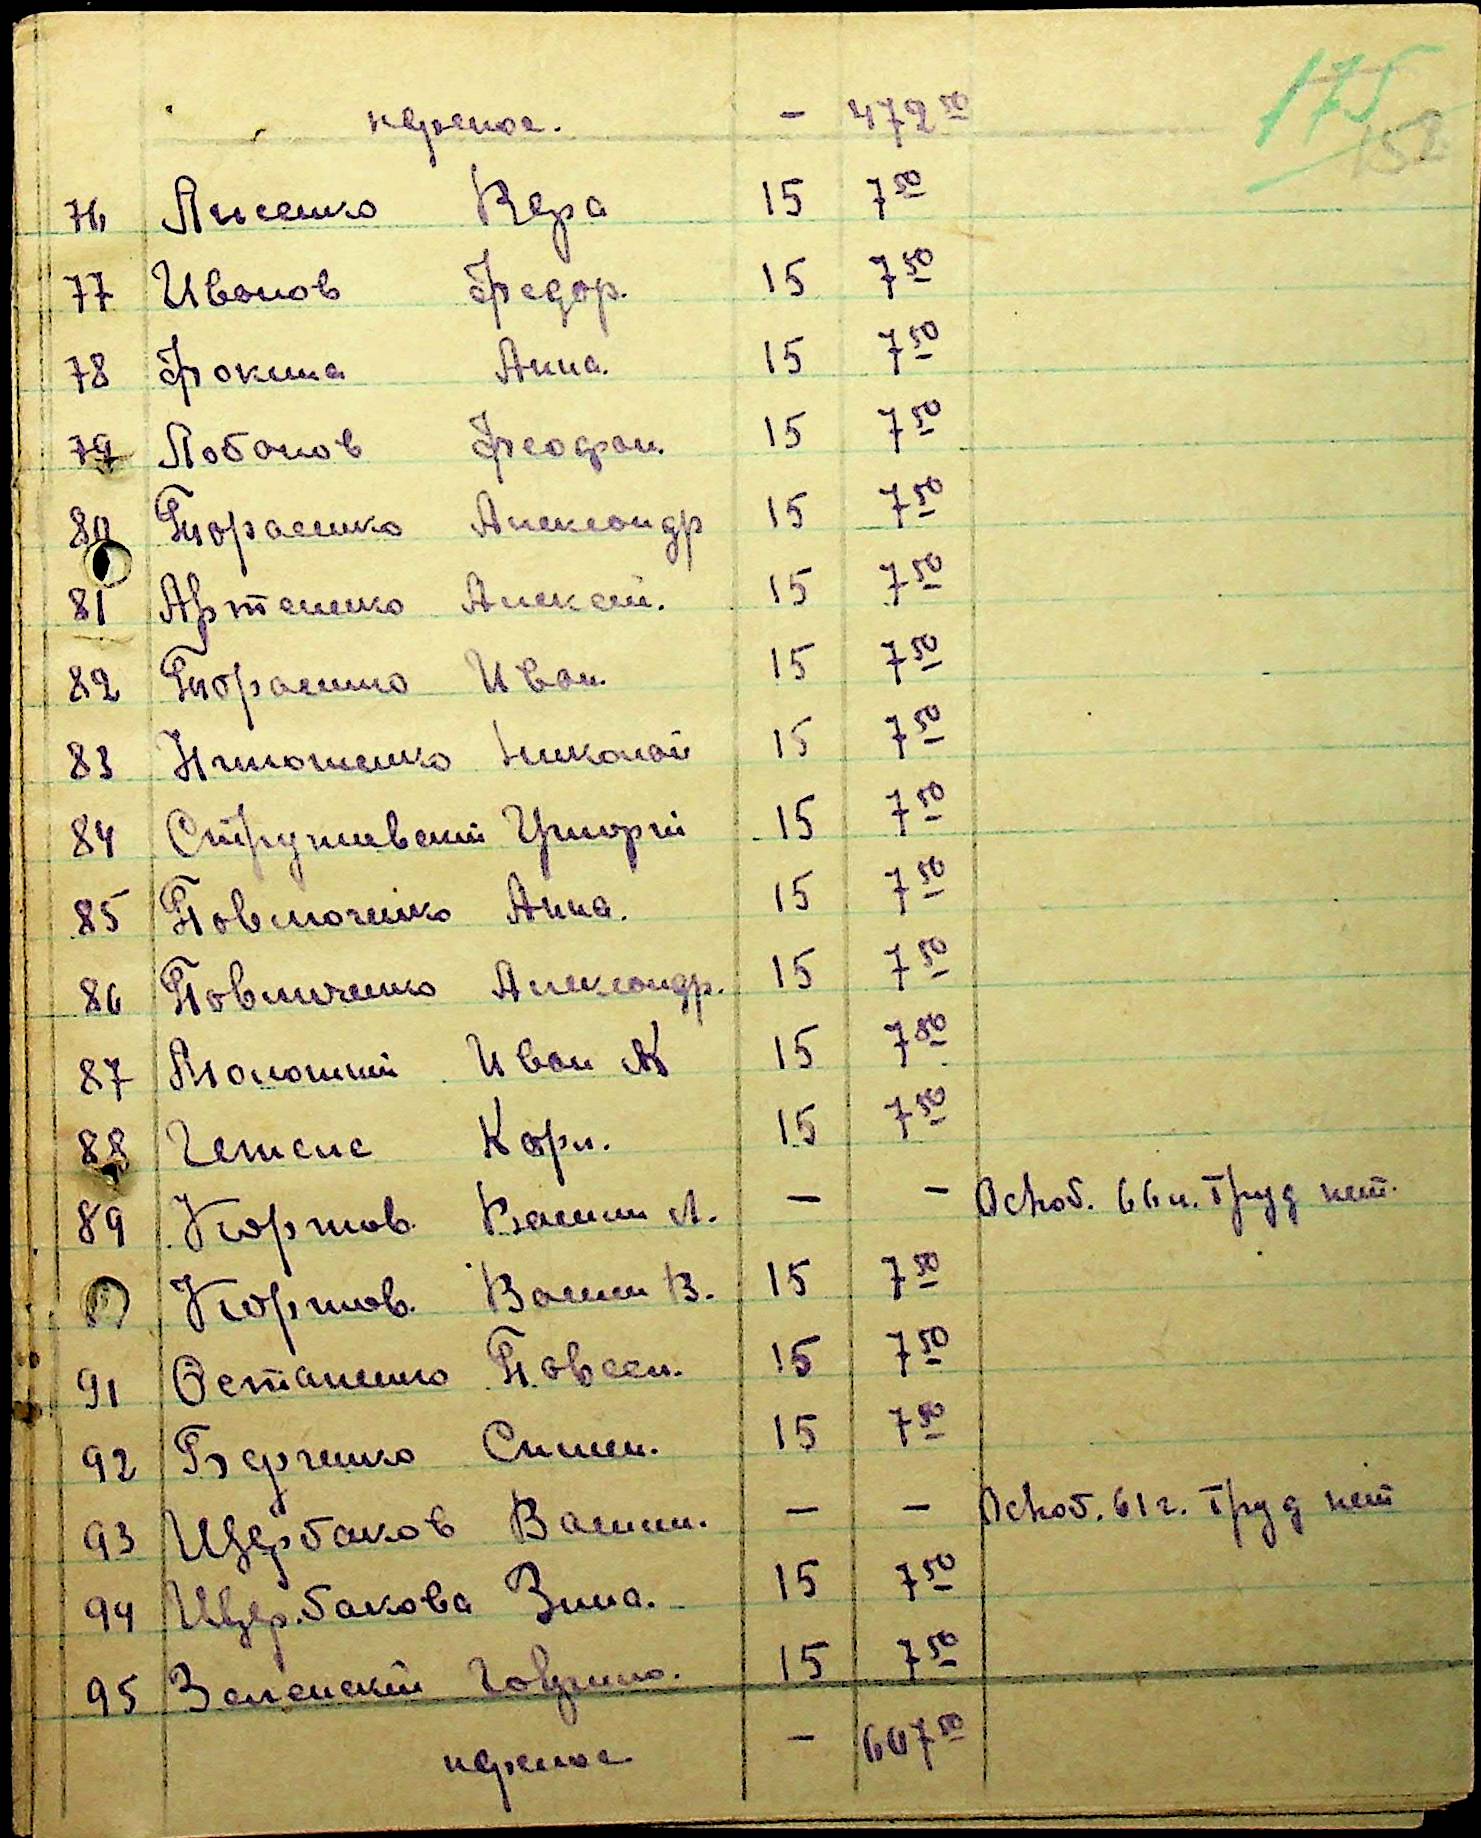 175
152
перенос. - 472 50
76 Лисенко Вера 15 7 50
77 Иванов Федор. 15 7 50
78 Фокина Анна. 15 7 50
79 Лобанов Феофан. 15 7 50
80 Тарасенко Александр 15 7 50
81 Артеменко Алексей. 15 7 50
82 Тарасенко Иван. 15 7 50
83 Николай 15 7 50
84 Григорий 15 7 50
85 Павлюченко Анна. 15 7 50
86 Павлюченко Александр. 15 7 50
87 Иван К 15 7 50
88 Карл. 15 7 50
89 Коржов. Васили А. - - Освоб. 66 л. Труд нет.
Коржов. Васили В. 15 7 50
91 Остапенко Павел. 15 7 50
92 15 7 50
93 Щербаков Васили. - - Освоб. 61 г. Труд нет
94 Щербакова Зина. 15 7 50
95 Зеленский Гаврило. 15 7 50
перенос - 607 50